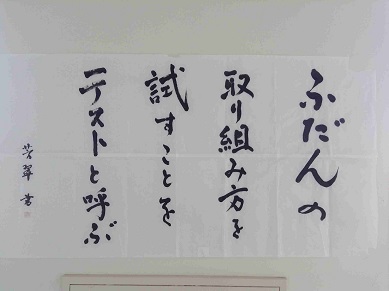 ふだんの
取り組み方を
試すことを
テストと呼ぶ
芳翠 書